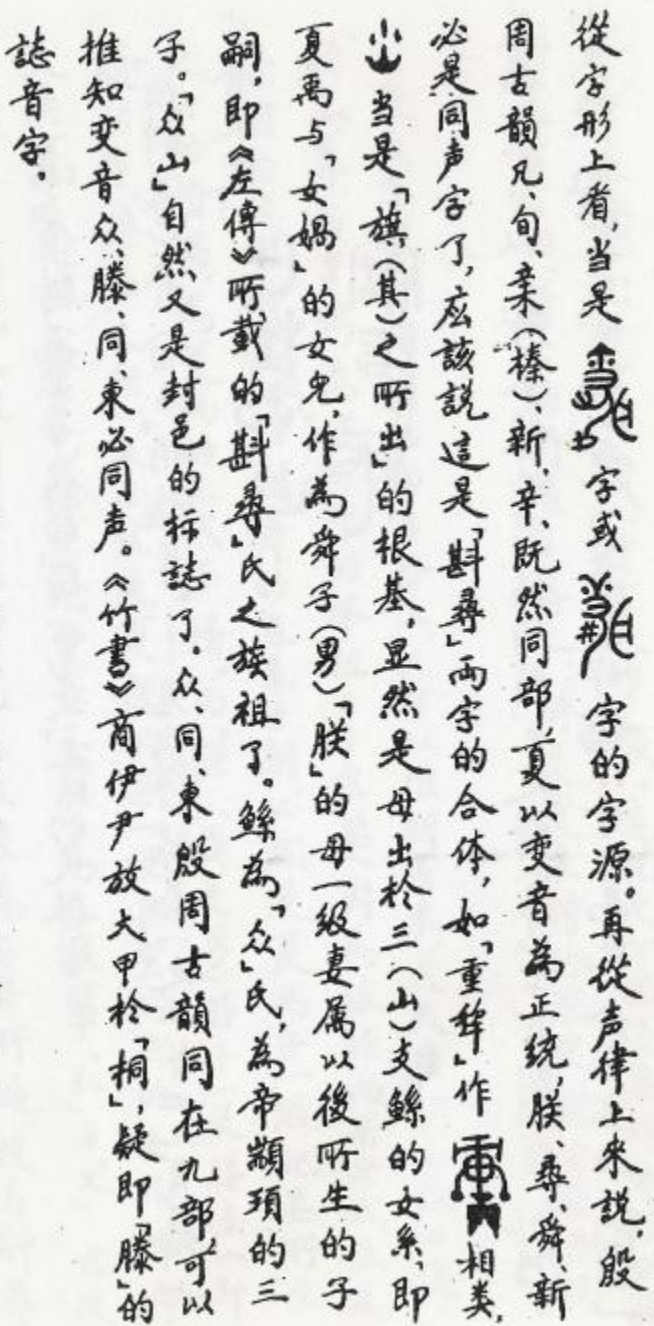 從字形上看，当是字或字的字源。再從声律上來説，殷
周古韻凡、旬、亲（榛）、新、辛、既然同部，夏以变音為正統，朕、尋、舜、新
必是同声字了，应该説這是「斟尋」両字的合体，如「重」作相类，
当是「旗（其）之所出」的根基，显然是母出於三（山）支鲧的女系，即
夏禹与「女媧」的女兒，作為舜子（男）「朕」的母一級妻属以後所生的子
嗣，即《左傳》所載的「斟尋」氏之族祖了。鲧為「众」氏，為帝顓頊的三
子。「众山」自然又是封邑的标誌了。众、同、東殷周古韻同在九部，可以
推知变音众、滕、同、東必同声。《竹書》商伊尹放大甲於「桐」，疑即「滕」的
誌音字。